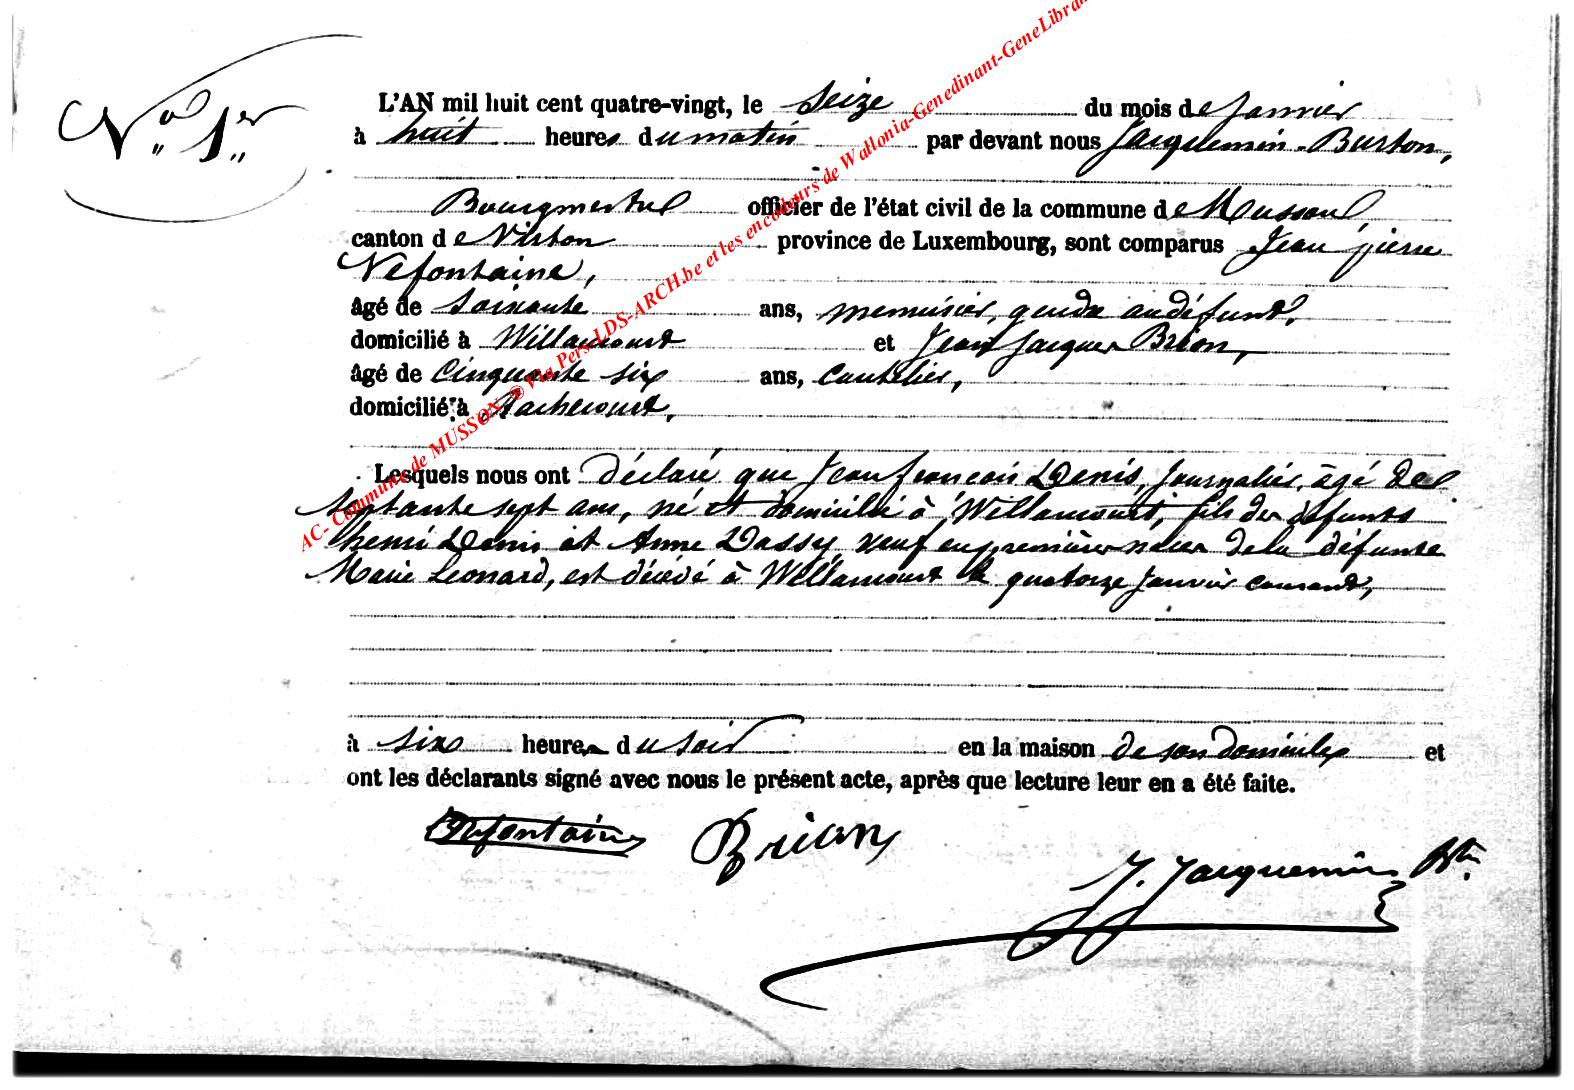 N° 1er
L'AN mil huit cent quatre-vingt, le seize du mois de Janvier
à huit heures du matin par devant nous Jacquemin-Burton,
Bourgmestre officier de l'état civil de la commune de Musson,
canton de Virton province de Luxembourg, sont comparus Jean pierre
Nefontaine,
âgé de soixante ans, menuisier, gendre au défunt,
domicilié à Willancourt et Jean Jacques Brion,
âgé de Cinquante six ans,
domicilié à Rachecourt,
Lesquels nous ont déclaré que Jean françois Denis, Journalier, âgé de
septante sept ans, né et domicilié à Willancourt, fils des défunts
henri Denis et Anne Dassy, veuf en premières noces de la défunte
Marie Leonard, est décédé à Willancourt le quatorze Janvier courant,
à six heures du soir en la maison de son domicile et
ont les déclarants signé avec nous le présent acte, après que lecture leur en a été faite.
Brion
J. Jacquemin Btn
AC- Commune de MUSSON @ Via Pers-LDS-ARCH.be et les encodeurs de Wallonia-Genedinant-GeneLibran